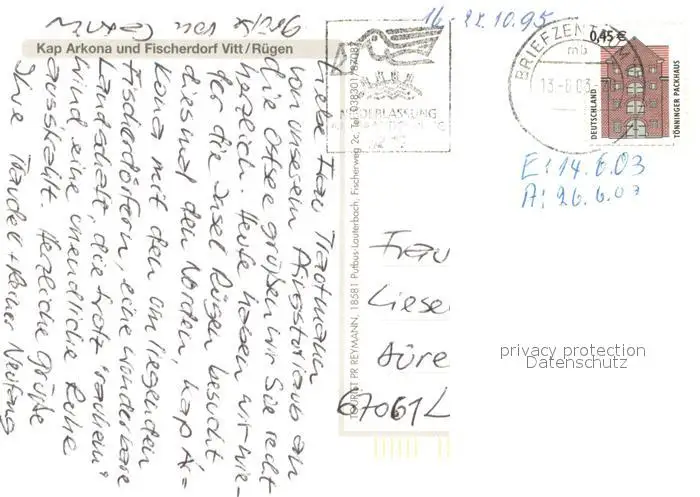 Kap Arkona und Fischerdorf Vitt/Rügen
Liebe Frau Trautmann
von unserem Pfingsturlaub an
die Ostsee grüßen wir Sie recht
herzlich. Heute haben wir wie-
der die Insel Rügen besucht
diesmal den Norden, Kap Ar=
kona mit den umliegenden
Fischerdörfern, eine wunderbare
Landschaft, die trotz "rauhem"
Wind eine unendliche Ruhe
ausstrahlt. Herzliche Grüße
Ihre Traudel + Reiner Neufang
Grüße von
TOURIST PR REYMANN, 18581 Putbus-Lauterbach, Fischerweg 2c, Tel. 038301/87087
16.-22.10.95
NIEDERLASSUNG
BRIEFZENTRUM
mb
13.-6.03
0,45 €
DEUTSCHLAND
TÖNNINGER PACKHAUS
E: 14.6.03
A: 26.6.03
Frau
Liese
Düre
67061 L
privacy protection
Datenschutz